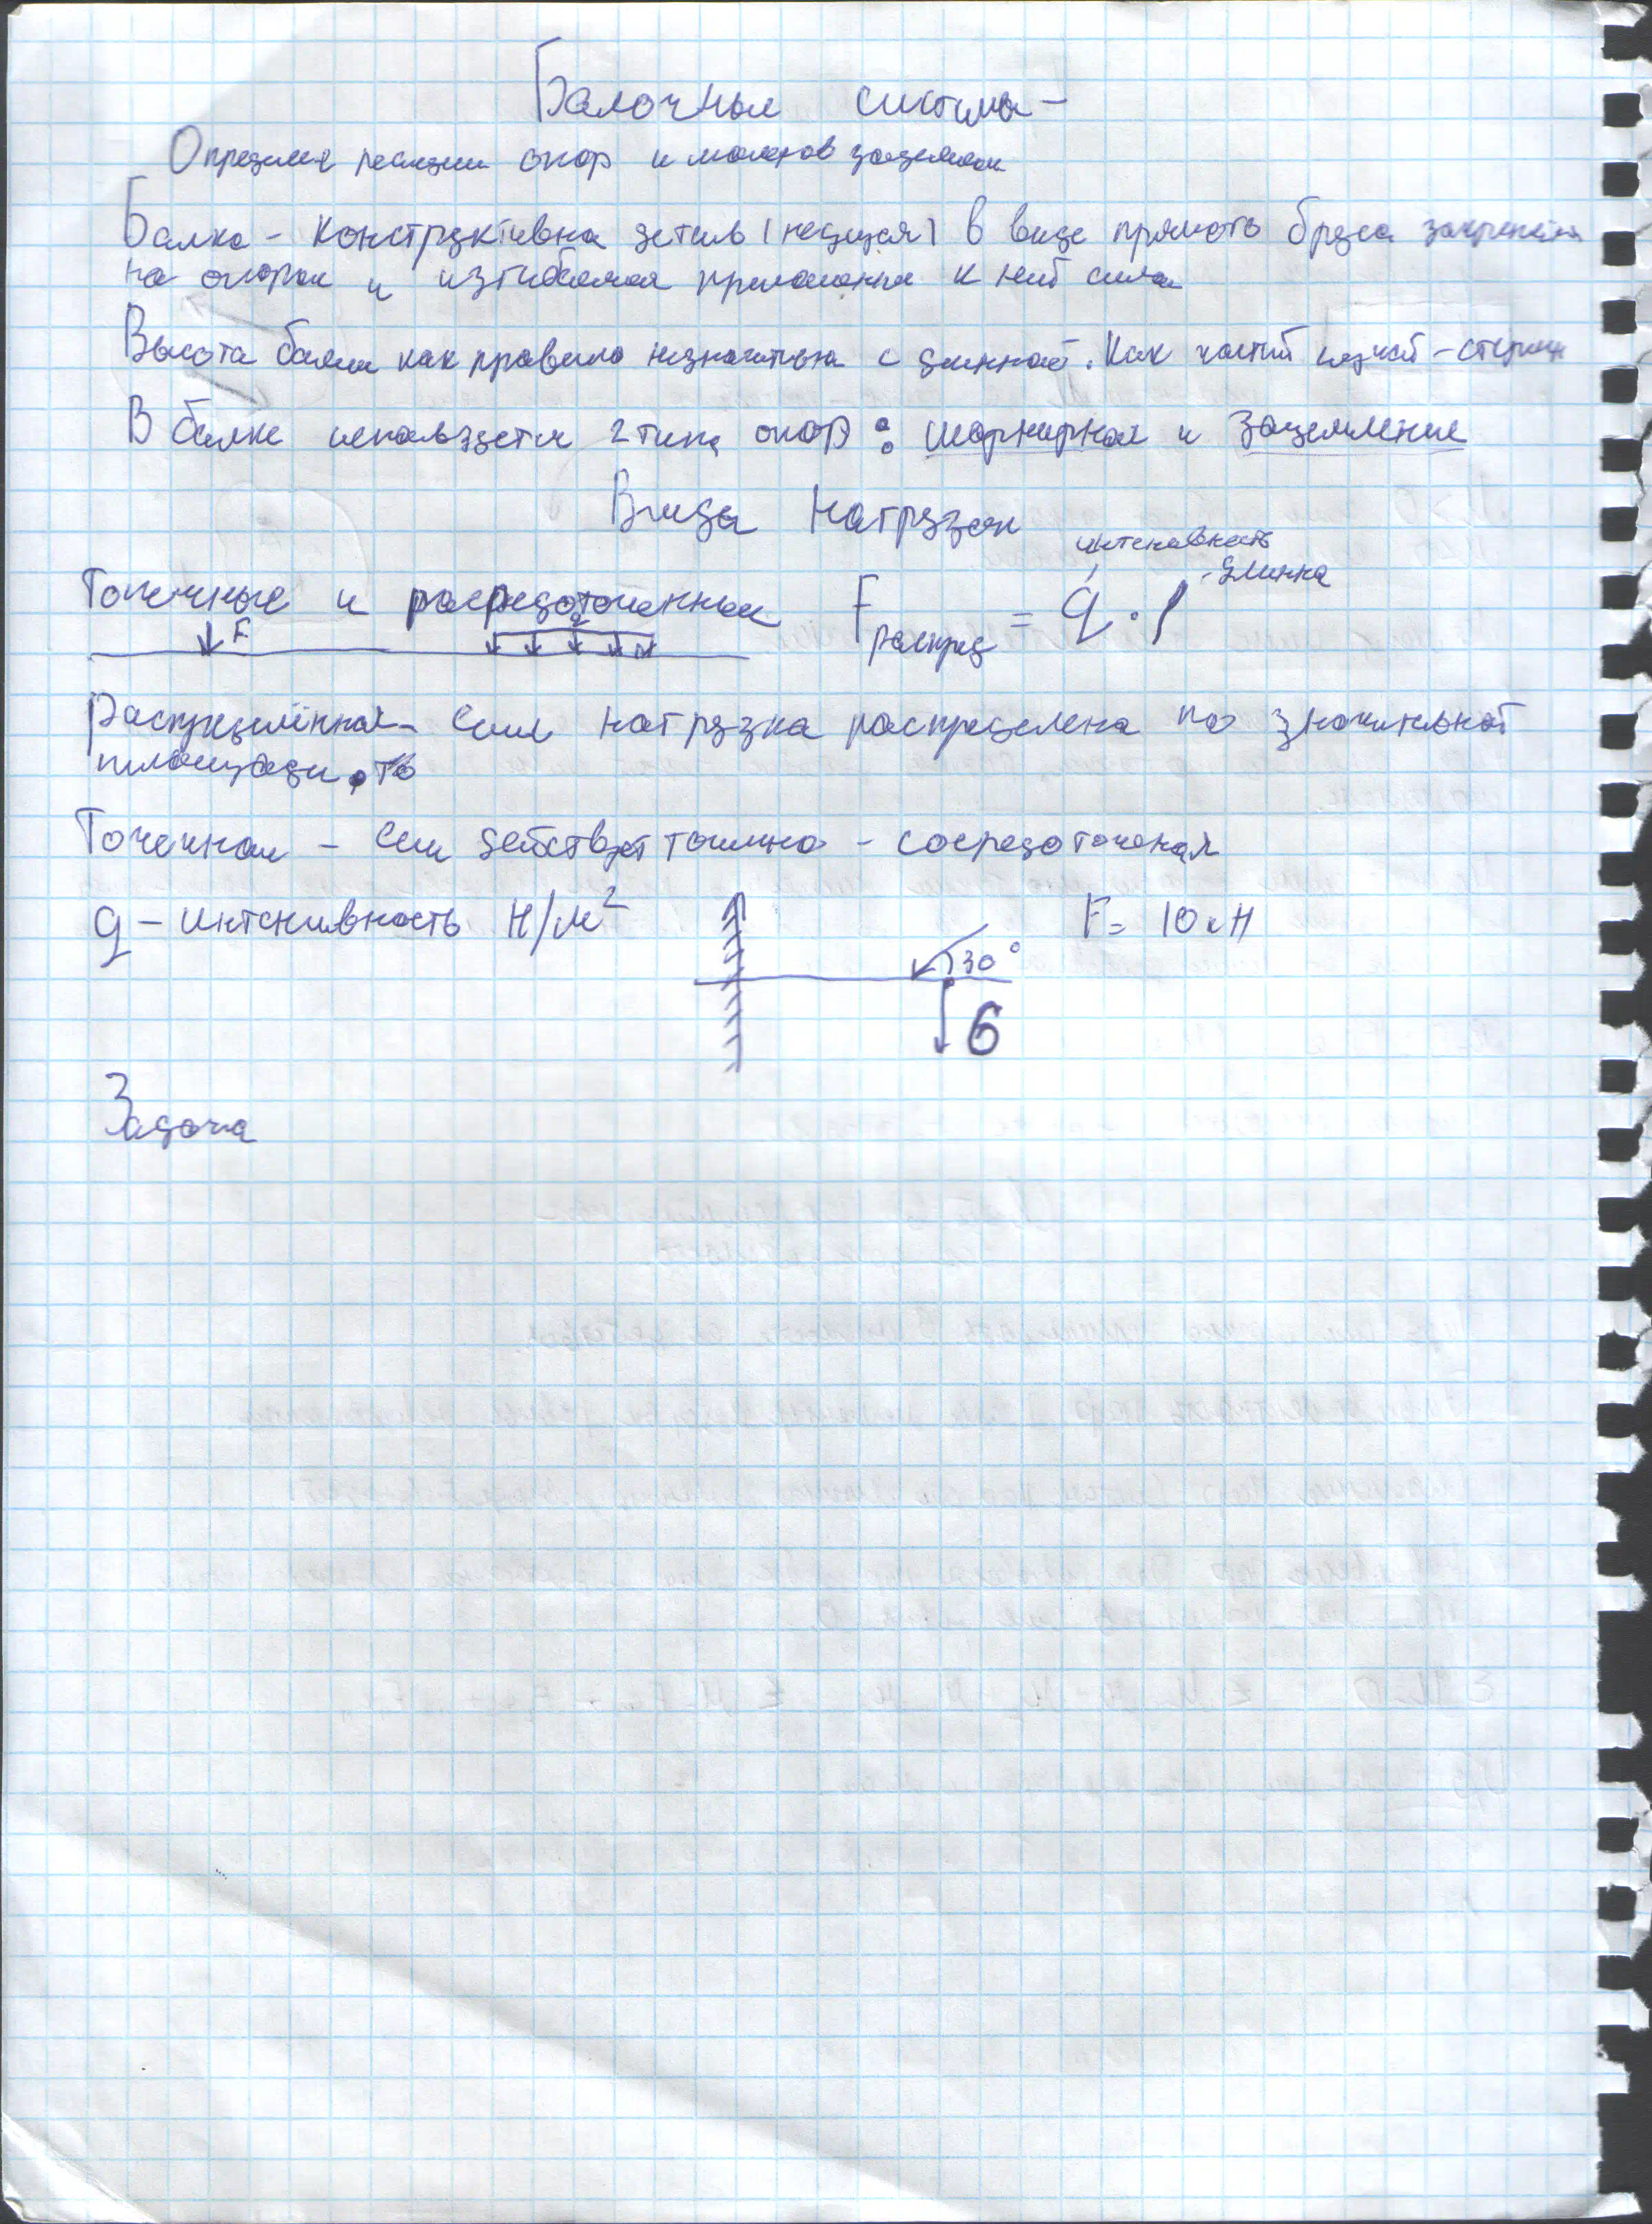 Балочные системы –
Определие реакции опор и моментов защемления
Балка – конструктивна деталь (несущая) в виде прямоть бруса закреплена
на опорах и изгибаемая приложенная к ней сила
Высота балки как правило незначительна с длинной. Как частый случай – стержн
В балке используется 2 типа опор: шарнирная и защемление
Виды нагрузок
интенсивность
длинна
Точечные и расредоточенные F распред = q · l
F q
Распределённая – если нагрузка распределена по значительной
площади, то
Точечная – если действует точечно – сосредоточеная
q – интенсивность Н/м² F = 10 кН
30°
6
Задача